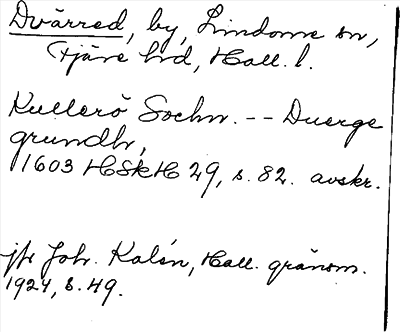 Dvärred, by, Lindome sn,
Fjäre hd, Hall. l.
Kullerö Sochn. -- Duerge
grundh,
1603 HSkH 29, s. 82. avskr.
jfr Joh. Kalén, Hall. gränsm.
1924, s. 49.